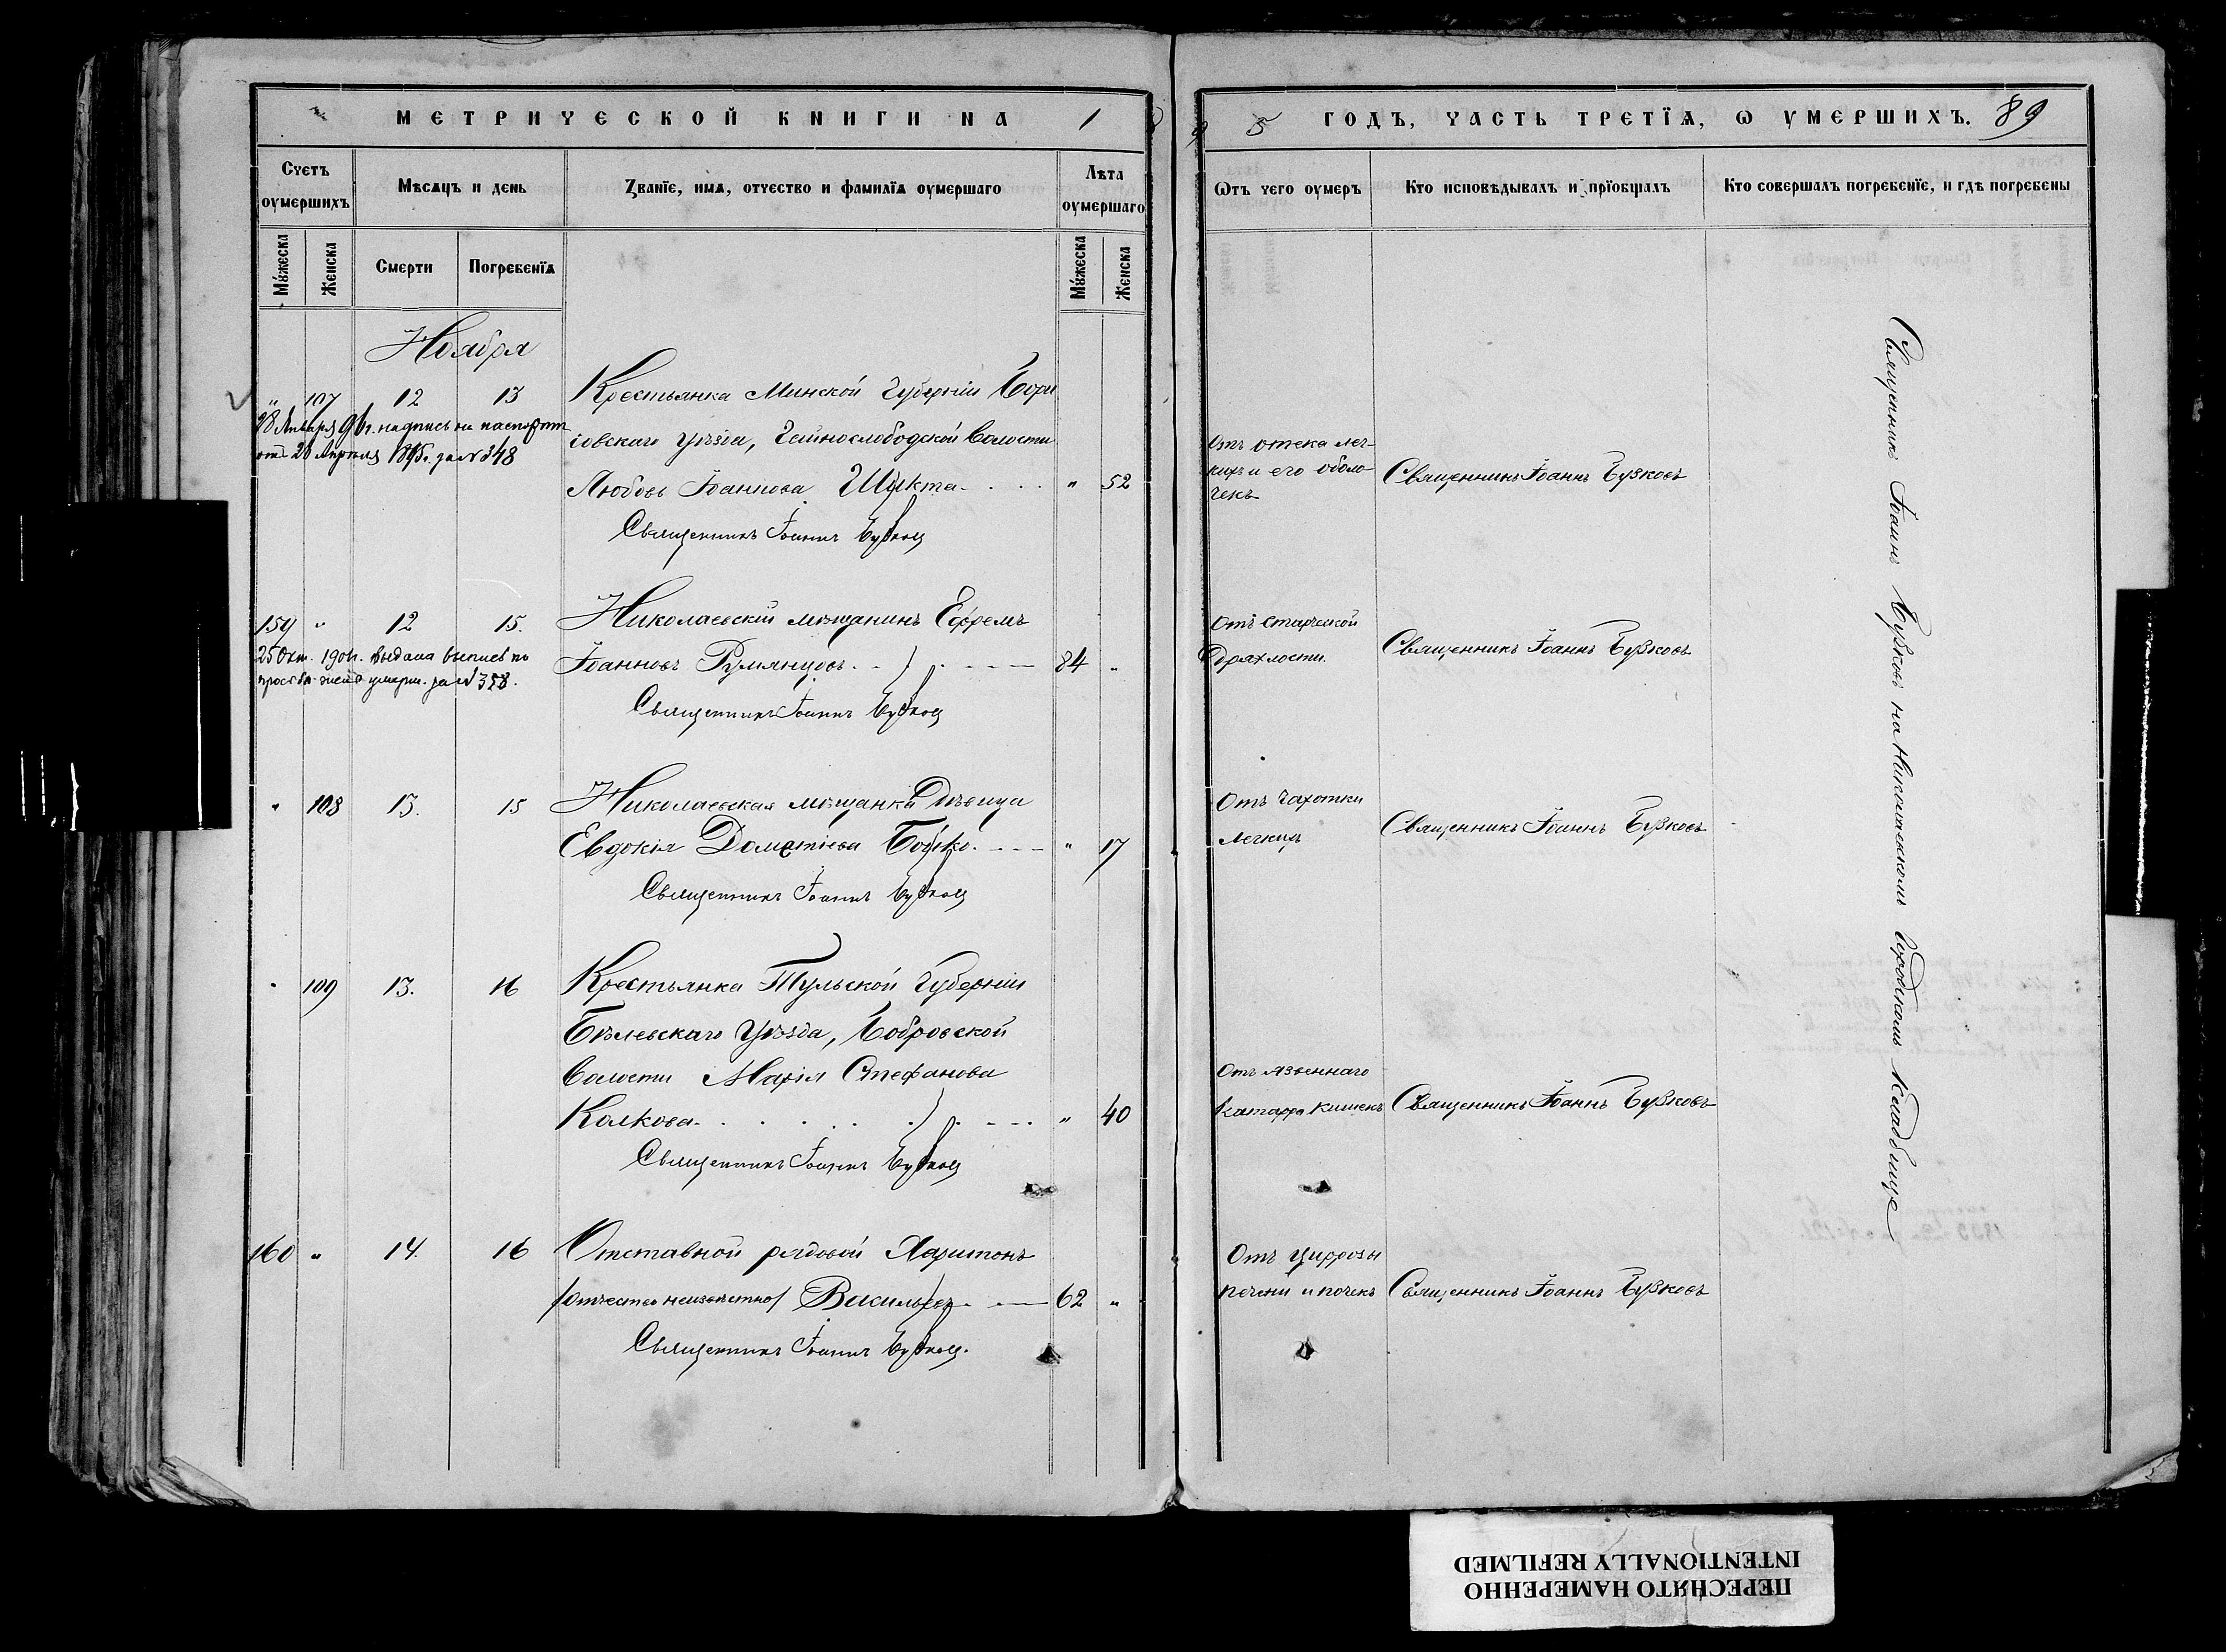 МЕТРИЧЕСКОЙ КНИГИ НА 1895 ГОДЪ, ЧАСТЬ ТРЕТІЯ, Ѡ УМЕРШИХЪ. 89
Счетъ оумершихъ
Мѣсяцъ и день
Званїе, имя, отчество и фамилїя оумершаго
Лѣта оумершаго
Ѿтъ чего оумеръ
Кто исповѣдывалъ и прїобщалъ
Кто совершалъ погребенїе, и гдѣ погребены
Мужеска
Женска
Смерти
Погребенїя
Мужеска
Женска
Ноября
" 107 12 13 Крестьянка Минской Губерніи Бори
совскаго Уѣзда, Гайнослободской Волости
Любовь Іоаннова Шикта " 52
Священникъ Іоаннъ Бузковъ
Января 96 г. надпись на паспортѣ
от 20 Апрѣля 1895 г. за № 348
Отъ отека лег-
кихъ и его оболо-
чекъ
Священникъ Іоаннъ Бузковъ
159 " 12 15. Николаевскій мѣщанинъ Ефремъ
Іоанновъ Румянцовъ 84 "
Священникъ Іоаннъ Бузковъ
25 Окт. 190 г. выдана выпись по
просьбѣ жены умерш. за №
Отъ старческой
дряхлости.
Священникъ Іоаннъ Бузковъ
" 108 13. 15 Николаевская мѣщанка Дѣвица
Евдокія Дометіева Бойко " 17
Священникъ Іоаннъ Бузковъ
Отъ чахотки
легкихъ
Священникъ Іоаннъ Бузковъ
" 109 13. 16 Крестьянка Тульской Губерніи
Бѣлевскаго Уѣзда, Бобровской
Волости Марія Стефанова
Колкова " 40
Священникъ Іоаннъ Бузковъ
Отъ язвеннаго
катарра кишекъ
Священникъ Іоаннъ Бузковъ
160 " 14. 16 Отставной рядовой Харитонъ
/отчество неизвѣстно/ Васильевъ 62 "
Священникъ Іоаннъ Бузковъ.
Отъ циррозы
печени и почекъ
Священникъ Іоаннъ Бузковъ
Священникъ Іоаннъ Бузковъ на Городскомъ Кладбище
ПЕРЕСНЯТО НАМЕРЕННО
INTENTIONALLY REFILMED